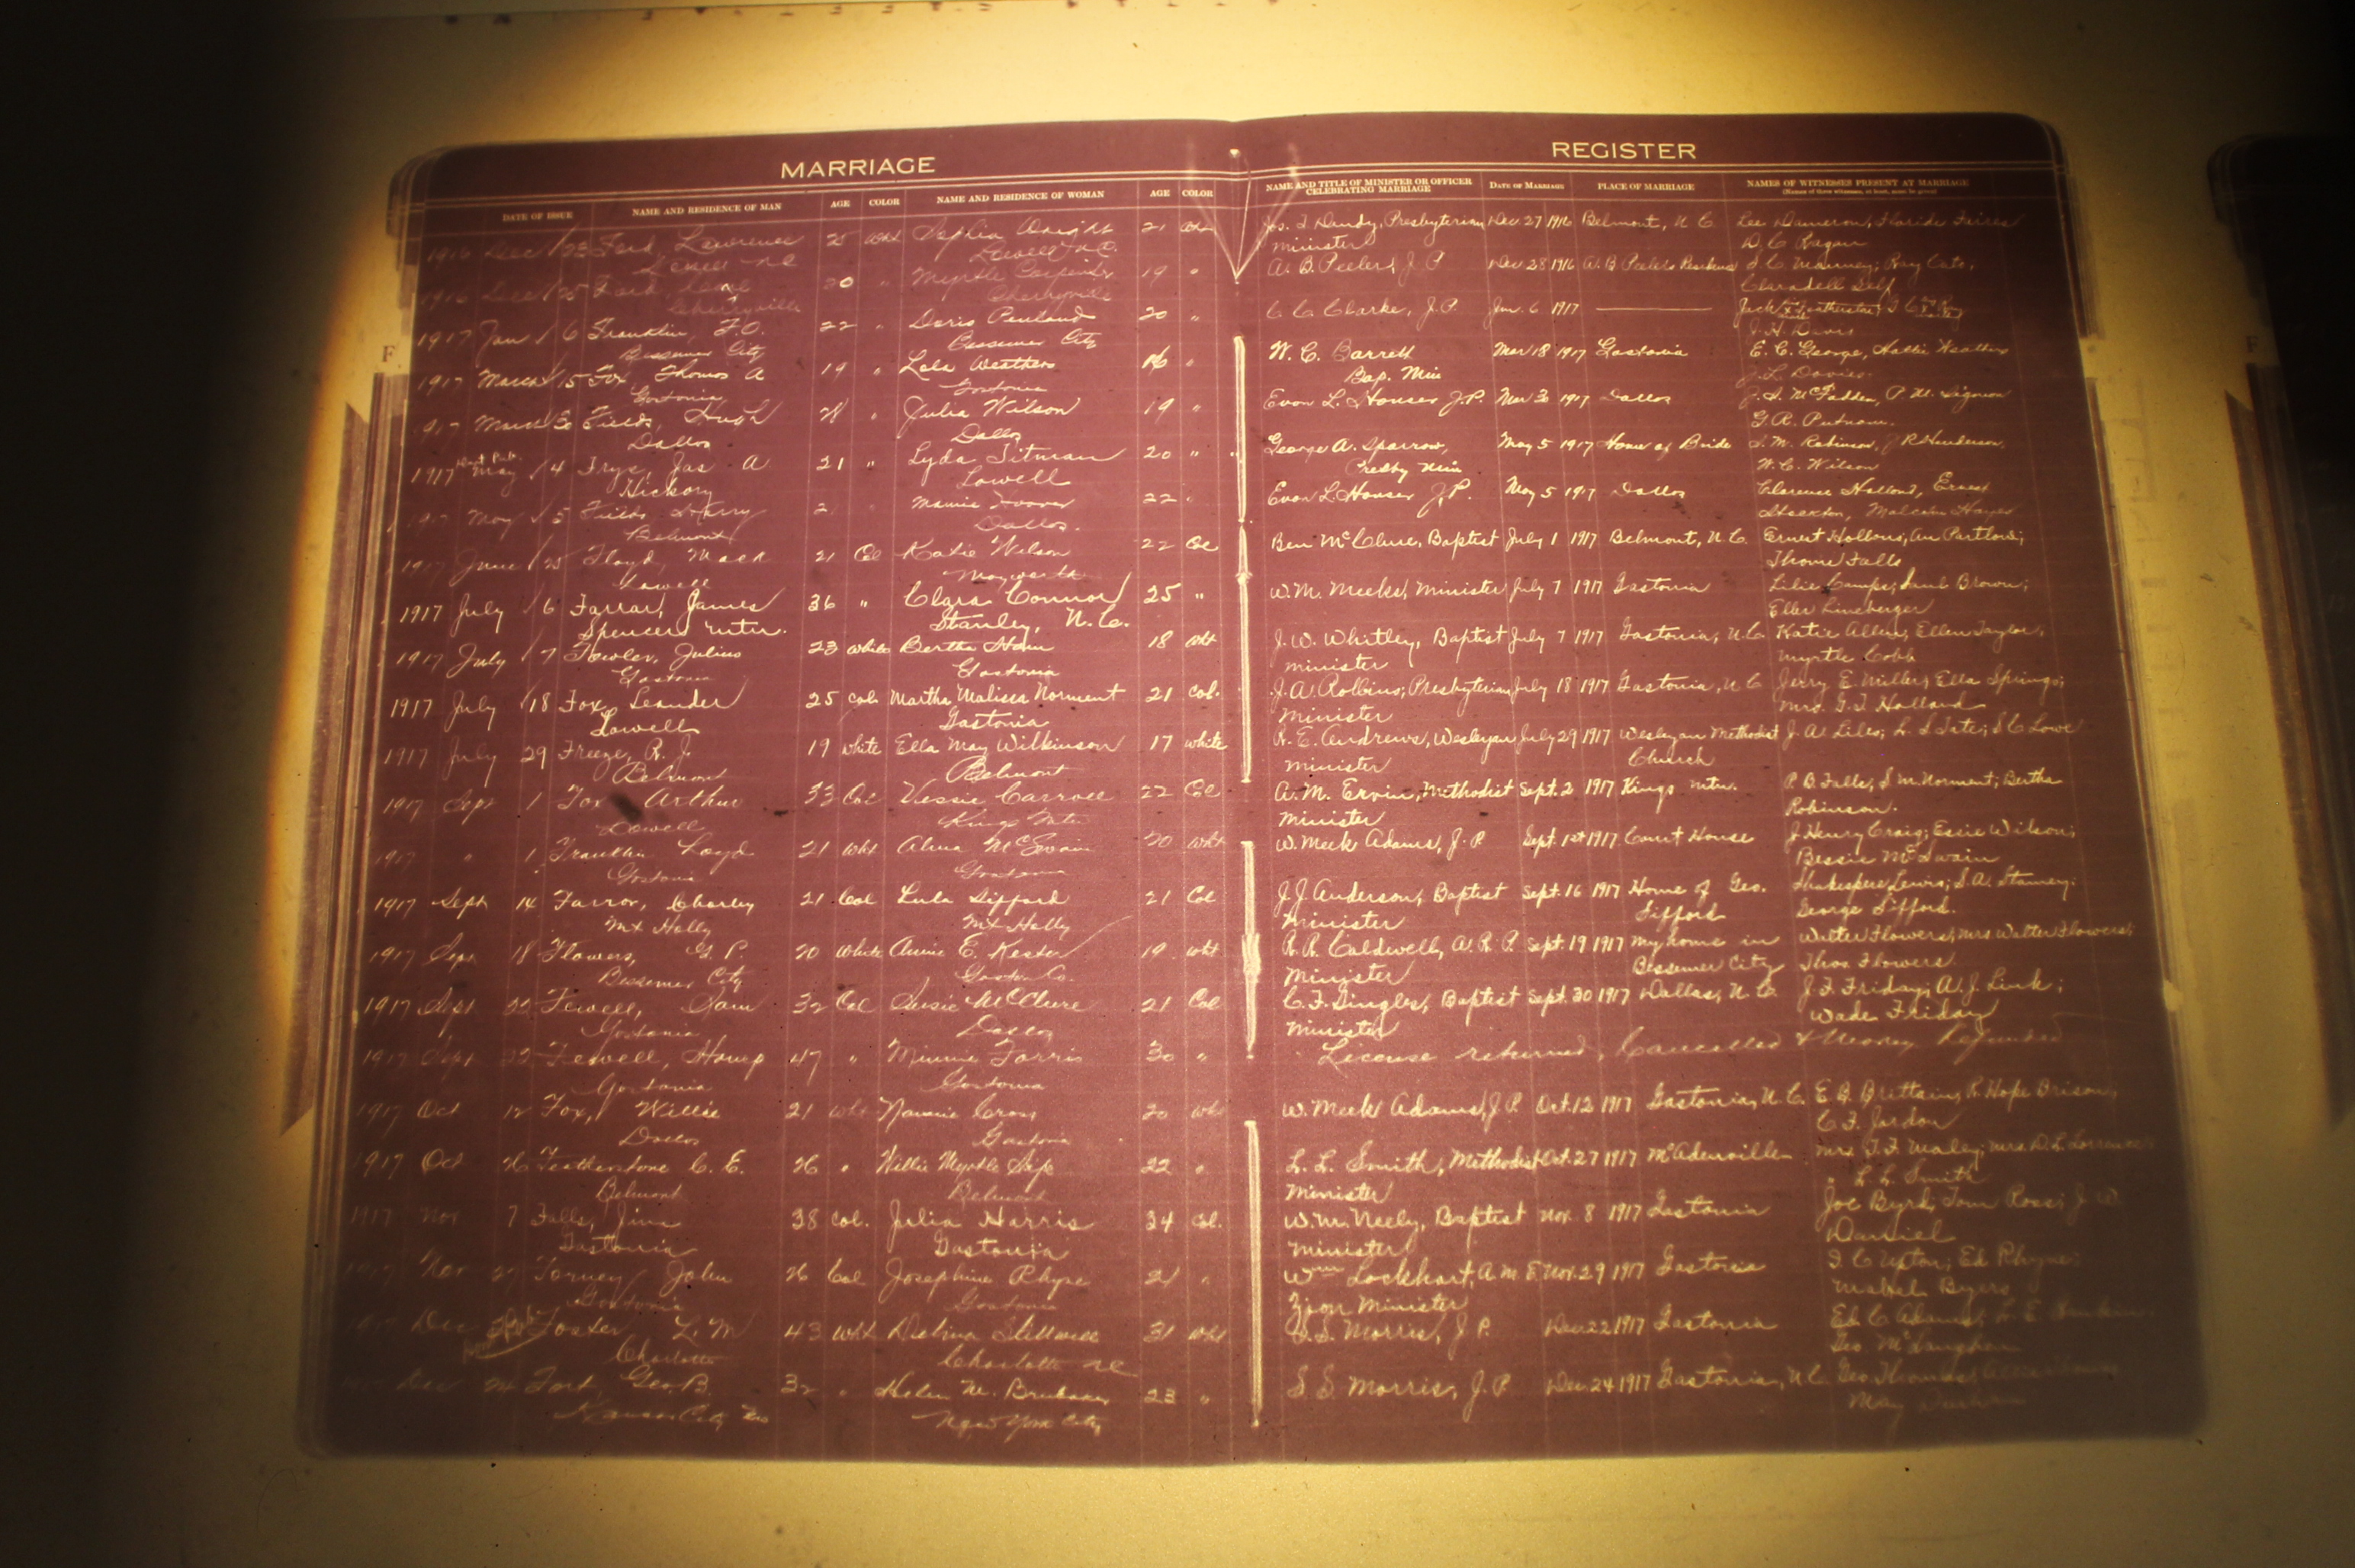 MARRIAGE
REGISTER
DATE OF ISSUE NAME AND RESIDENCE OF MAN AGE COLOR NAME AND RESIDENCE OF WOMAN AGE COLOR NAME AND TITLE OF MINISTER OR OFFICER CELEBRATING MARRIAGE DATE OF MARRIAGE PLACE OF MARRIAGE NAMES OF WITNESSES PRESENT AT MARRIAGE
1916 Dec 23 Ford, Lawrence 25 Wht Sophia Wright 21 Wht Jos. T Dendy, Presbyterian Dec 27 1916 Belmont, N C Lee Dameron, Floride
Lowell NC Lowell N.C. Minister D. C. Ragan
1916 Dec 25 Ford, 20 " Myrtle Carpenter 19 " A. B. Peeler, J P Dec 28 1916 A. B. Peelers Residence Mauney; Ray Cato,
Cherryville Cherryville Claradell Self
1917 Jan 6 Franklin, F.O. 22 " Doris Penland 20 " C C Clarke, J.P. Jan. 6 1917 Jack Featherston,
Bessemer City Bessemer City J. H. Davis
1917 March 15 Fox, Thomas A 19 " Lola Weathers 16 " W. C. Barrett Mar 18 1917 Gastonia E. C. George, Hattie Weathers
Gastonia Gastonia Bap. Min J. L. Davies.
1917 March 30 Fields, Hugh 21 " Julia Wilson 19 " Evon L. Houser J.P. Mar 30 1917 Dallas J. A. McFadden, P. M. Sigmon
Dallas Dallas G. R. Putnam.
1917 May 4 Frye, Jas A 21 " Lyda Titman 20 " George A. Sparrow, May 5 1917 Home of Bride S. M. Robinson, J R Henderson
Hickory Lowell Presby Min W. C. Wilson
1917 May 5 Fields Harry 21 " Mamie Hoover 22 " Evon L. Houser J.P. May 5 1917 Dallas Clarence Holland, Ernest
Belmont Dallas. Stockton, Malcolm
1917 June 25 Floyd, Mack 21 Col Katie Wilson 22 Col Ben McClure, Baptist July 1 1917 Belmont, N.C. Ernest Hollous, Partlow;
Lowell Mayworth Thome Falls
1917 July 6 Farrar, James 36 " Clara Connor 25 " W. M. Meeks, Minister July 7 1917 Gastonia Lilie Camps; Brown;
Spencer Mtn. Stanley, N.C. Ella Lineberger
1917 July 7 Fowler, Julius 23 White Bertha Ham 18 Wht J. W. Whitley, Baptist July 7 1917 Gastonia, N.C. Katie Allen, Ellen Taylor,
Gastonia Gastonia Minister Myrtle Cobb
1917 July 18 Fox, Leander 25 Col. Martha Malissa Norment 21 Col. J. A. Rollins, Presbyterian July 18 1917 Gastonia, N C Jerry E. Miller; Ella Springs;
Lowell Gastonia Minister Mrs. G. T. Holland
1917 July 29 Freeze, R. J. 19 White Ella May Wilkinson 17 White R. E. Andrews, Wesleyan July 29 1917 Wesleyan Methodist J. A. Liles; L. S. Tate; S C Lowe
Belmont Belmont Minister Church
1917 Sept 1 Fox Arthur 33 Col Vessie Carroll 22 Col A. M. Ervin, Methodist Sept. 2 1917 Kings Mtn. P. B. Falls, S. M. Norment; Bertha
Lowell Kings Mtn Minister Robinson.
1917 " 1 Franklin Loyd 21 Wht Alma McSwain 20 Wht W. Meek Adams, J. P. Sept. 1st 1917 Court House J Henry Craig; Essie Wilson;
Gastonia Gastonia Bessie McSwain
1917 Sept 14 Farror, Charley 21 Col Lula Sifford 21 Col J. J. Anderson, Baptist Sept. 16 1917 Home of Geo. Shakespere Lewis; S. A. Stamey;
Mt Holly Mt Holly Minister Sifford George Sifford.
1917 Sept 18 Flowers, G. P. 20 White Annie E. Kester 19 Wht R. R. Caldwell, A. R. P. Sept. 19 1917 My home in Walter Flowers; Mrs Walter Flowers;
Bessemer City Gaston Co. Minister Bessemer City Thos. Flowers
1917 Sept 22 Fewell, Sam 32 Col Susie McClure 21 Col C. F. Gingles, Baptist Sept. 30 1917 Dallas, N. C. J. F. Friday; A. J. Link;
Gastonia Dallas Minister Wade Friday
1917 Sept 22 Fewell, 47 " Minnie Farris 30 " License returned, Cancelled & Money Refunded
Gastonia Gastonia
1917 Oct 12 Fox, Willie 21 Wht Nannie 20 Wht W. Meek Adams, J. P. Oct. 12 1917 Gastonia, N. C. E. B. Brittain, R. Hope Brison,
Dallas Gastonia C. F. Jordan
1917 Oct 26 Featherstone C. E. 26 " Willie Myrtle 22 " L. L. Smith, Methodist Oct. 27 1917 McAdenville Mrs T. F. Maley; Mrs. D. L.
Belmont Belmont Minister " L. L. Smith
1917 Nov 7 Falls, Jim 38 Col. Julia Harris 34 Col. W. M. Neely, Baptist Nov. 8 1917 Gastonia Joe Byrd; Tom Ross; J. W.
Gastonia Gastonia Minister Daniel
1917 Nov 27 Forney John 26 Col Josephine Rhyne 21 " Wm Lockhart, A. M. E. Nov. 29 1917 Gastonia I C Upton; Ed Rhyne;
Gastonia Gastonia Zion Minister Mabel Byers
1917 Dec Foster Z. M 43 Wht 31 Wht S. S. Morris, J P. Dec 22 1917 Gastonia Ed. C. Adams, L. E.
Charlotte Charlotte NC Geo. McLaughan
Dec 24 Fort, Geo. B. 32 " Helen M. Brubaker 23 " S. S. Morris, J. P Dec. 24 1917 Gastonia, N.C. Geo. Thomas,
Kansas City Mo New York City May Durham
F